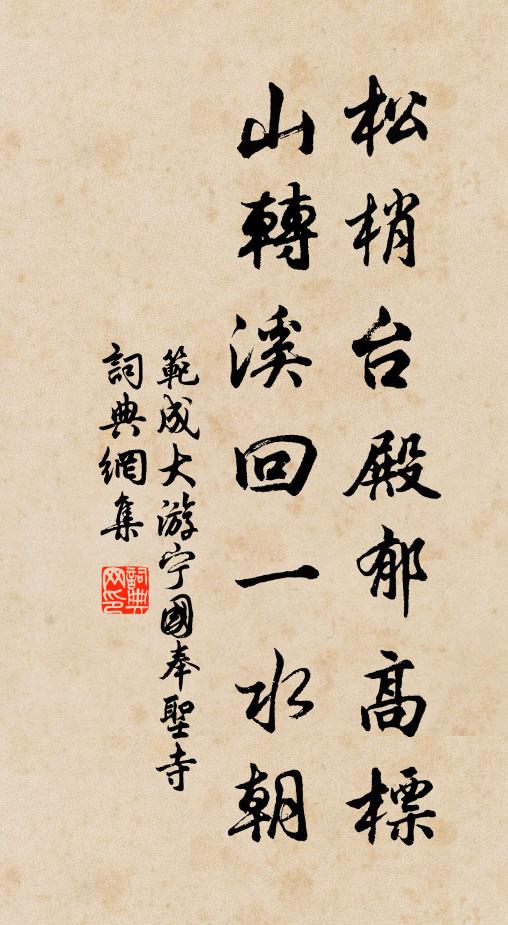 松梢台殿郁高標
山轉溪回一水朝
範成大游宁國奉聖寺
詞典網集
詞典网印